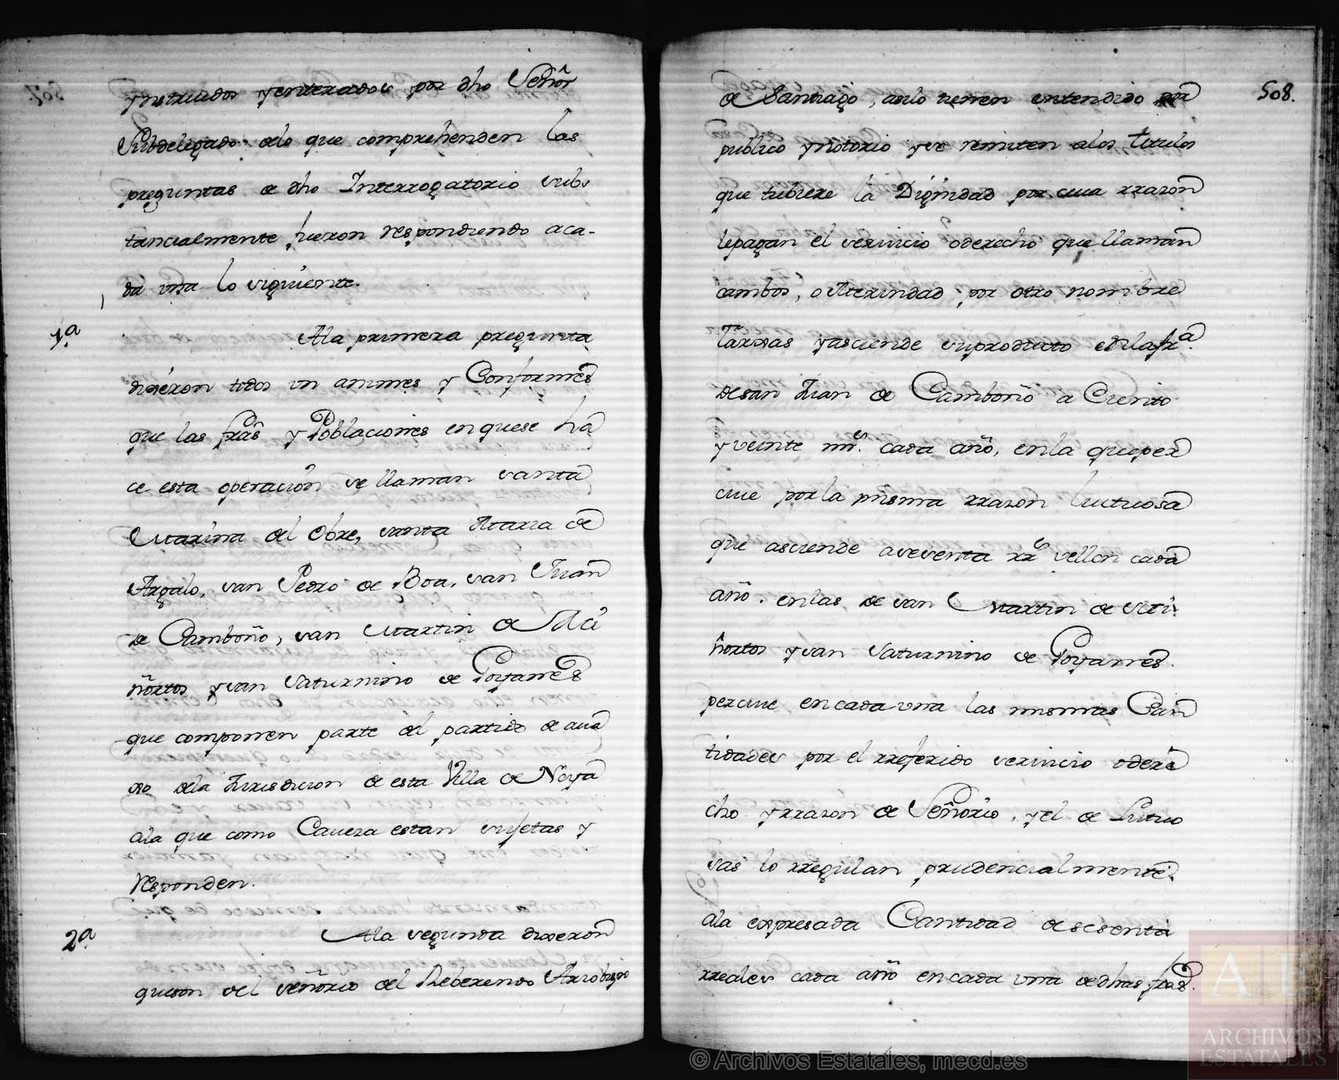 ynstruidos yenterados por dho Señor
Subdelegado delo que comprehenden las
preguntas de dho Interrogatorio subs
tancialmente fueron respondiendo aca-
da una lo siguiente.
1ª
Ala primera pregunta
dixeron todos un animes y Conformes
que las frãs y Poblaciones enquese ha
ce esta operacion se llaman santa
Marina del Obre, santa Maria de
Argalo, san Pedro de Boa, san Juan
de Camboño, san Martin de
ñortos ysan Saturnino de Goyanes
que componen parte del partido de
delajurisdicion de esta Villa de Noya
ala que como Caveza estan sujetas y
responden.
2ª
Ala segunda dixeron
queson del señorio del Reberendo Arzobispo
508.
de Santiago, asilo tienen entendido por
publico ynotorio yse remiten alos titulos
que tubiere la Dignidad por cuia rrazon
lepagan el servicio oderecho que llaman
cambos, o Merindad por otro nombre
yasciende suproducto enlafrª
desan Juan de Camboño a Ciento
yveinte mrs. cada año, enla queper
cive porla misma rrazon luctuosa
que asciende asesenta rrs vellon cada
año. enlas de san Martin de
ñortos ysan Saturnino de Goyanes.
percive encada una las mismas Can
tidades por el rreferido servicio odere
cho yrrazon de Señorio, yel de Luctuo
sas lo rregulan prudencialmente
ala expresada Cantidad desesenta
rreales cada año encada una dedhas frãs.
© Archivos Estatales, mecd.es
A E
ARCHIVOS
ESTATALES